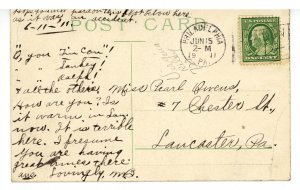 as it was an accident.
6-11-11
POST CARD
PHILADELPHIA
JUN 15
2-M
1911
PA.
"O, you
Turkey
Ralph!
& all the others
How are you? Is
it warm in
now. It is terrible
here. I presume
you are having
great times there
are. Lovingly, M.B.
Miss Pearl Owens,
#7 Chester St.,
Lancaster, Pa.